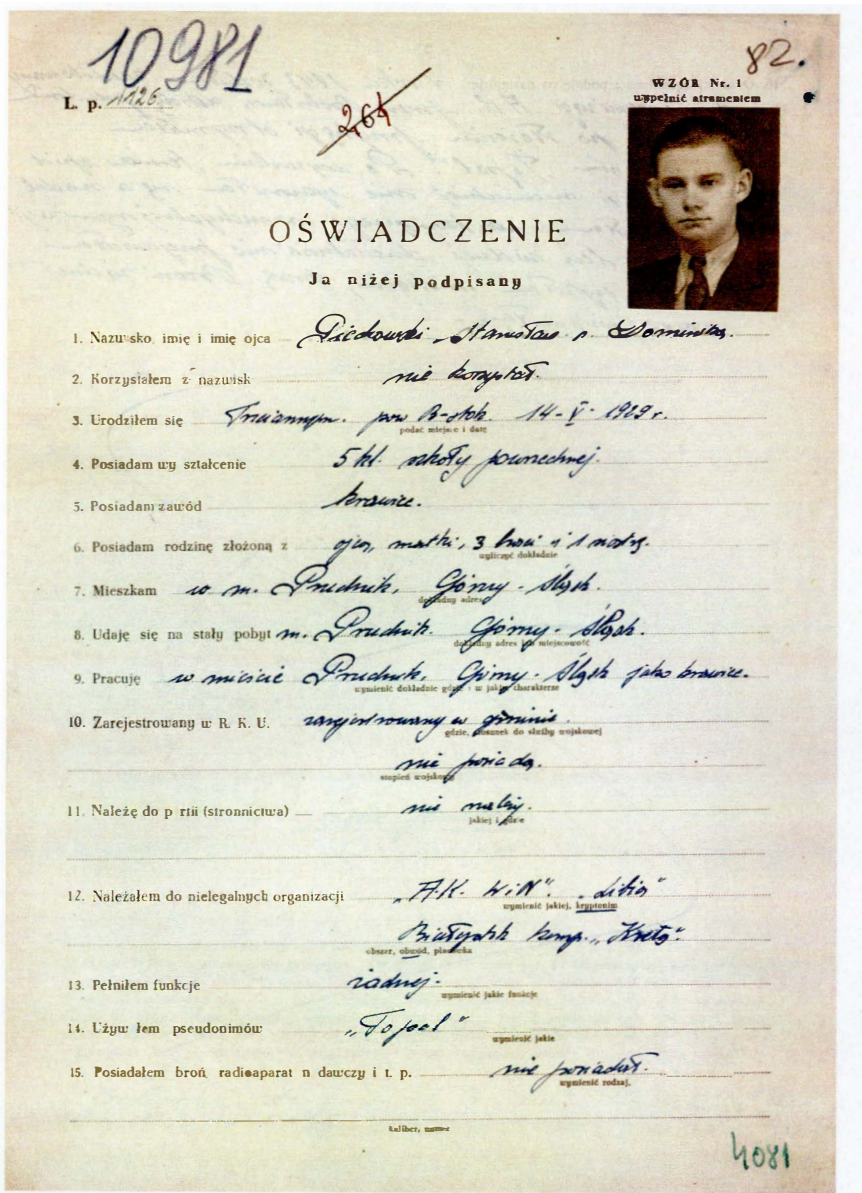 10981
82.
WZÓR Nr. 1
wypełnić atramentem
L. p. 1126
264
OŚWIADCZENIE
Ja niżej podpisany
1. Nazwisko, imię i imię ojca Piećkowski Stanisław s. Dominika.
2. Korzystałem z nazwisk nie korzystał.
3. Urodziłem się pow B-stok. 14-V-1929 r.
podać miejsce i datę
4. Posiadam wy ształcenie 5 kl. szkoły powszechnej.
5. Posiadam zawód krawiec.
6. Posiadam rodzinę złożoną z ojca, matki, 3 braci i 1 siostrą.
wyliczyć dokładnie
7. Mieszkam w m. Prudnik, Górny-Śląsk.
dokładny adres
8. Udaję się na stały pobyt m. Prudnik. Górny-Śląsk.
dokładny adres lub miejscowość
9. Pracuję w mieście Prudnik, Górny-Śląsk jako krawiec.
wymienić dokładnie gdzie i w jakim charakterze
10. Zarejestrowany w R. K. U. zarejestrowany w gminie.
gdzie, stosunek do służby wojskowej
nie posiada.
stopień wojskowy
11. Należę do p rtii (stronnictwa) nie należy.
jakiej i gdzie
12. Należałem do nielegalnych organizacji „A.K. WiN". „Libia"
wymienić jakiej, kryptonim
Białystok komp. „Kreta".
obszar, obwód, placówka
13. Pełniłem funkcje żadnej.
wymienić jakie funkcje
14. Używ łem pseudonimów „Topol"
wymienić jakie
15. Posiadałem broń radioaparat n dawczy i t. p. nie posiadał.
wymienić rodzaj,
kaliber, numer
4081